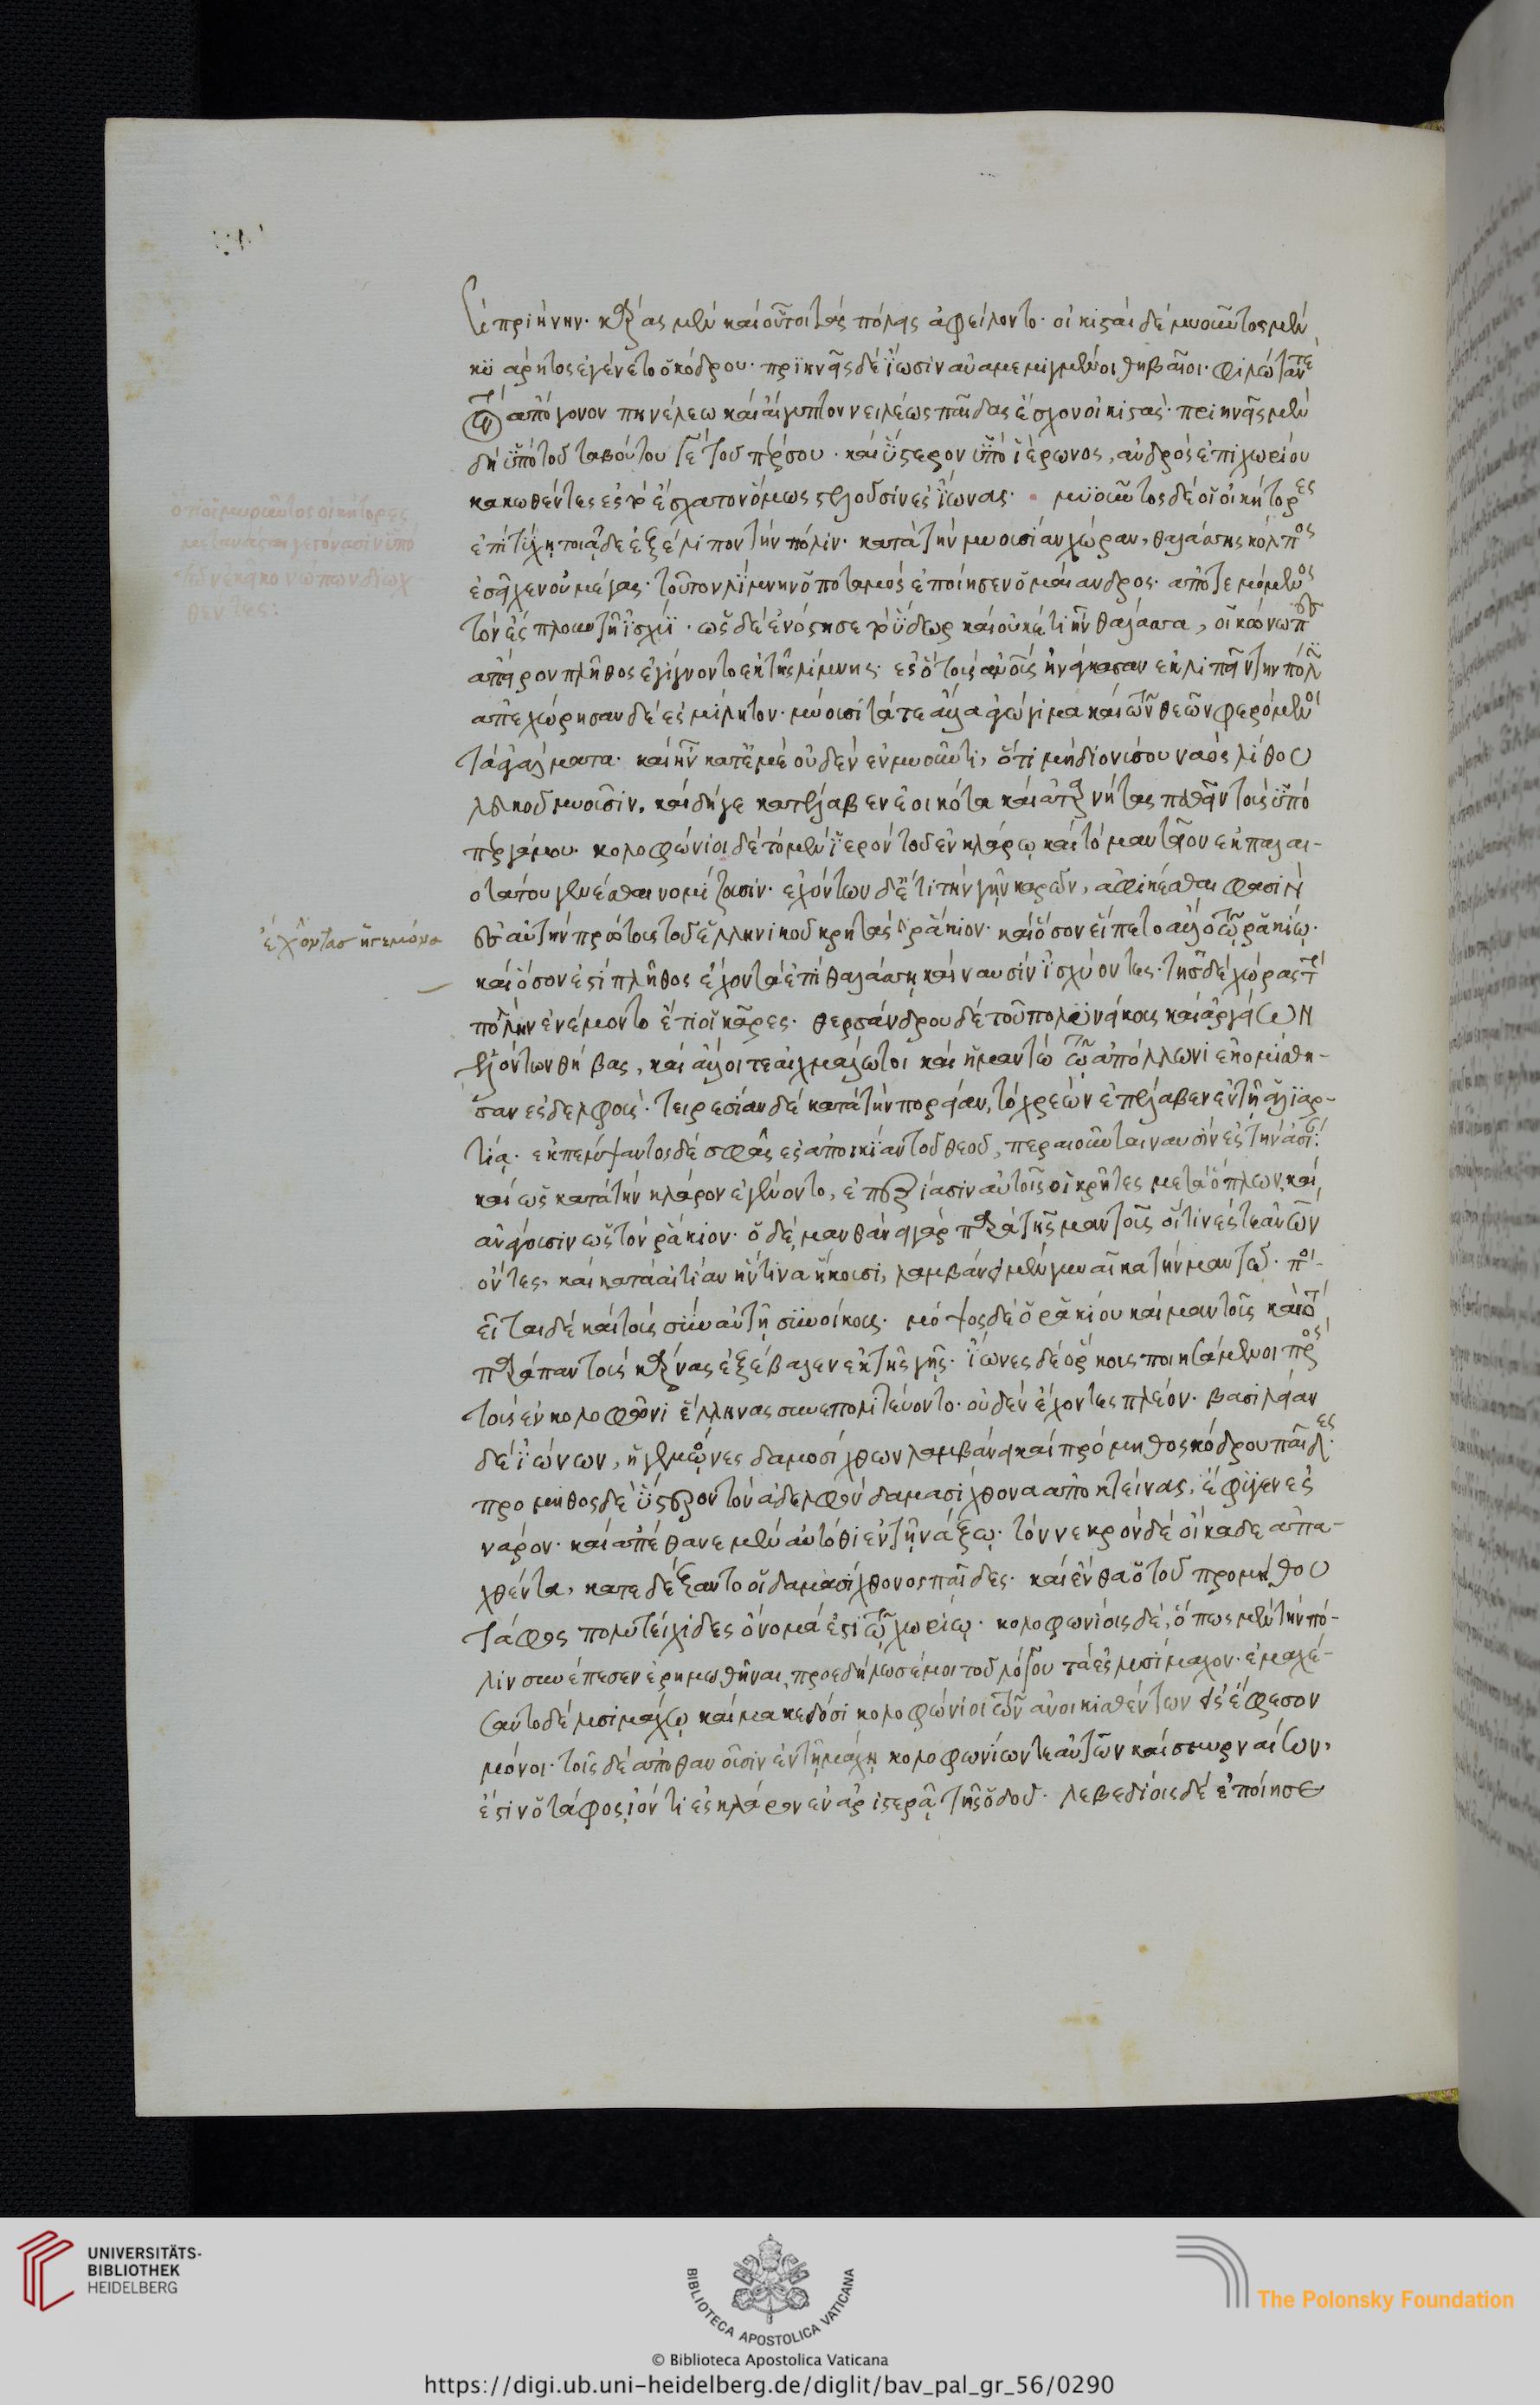 ὅποι μυοῦντος οἰκήτορες
μετανάσται γεγόνασιν ὑπὸ
τῶν ἐκεῖ κωνώπων διωχ
θέντες:
ἔχοντας ἡγεμόνα
πριήνην· κᾶρας μὲν καὶ οὗτοι τὰς πόλεις ἀφείλοντο· οἰκισταὶ δὲ μυοῦντος μὲν
κυάρητος ἐγένετο ὁ κόδρου· πριηνεῖς δὲ ἴωσιν ἀναμεμιγμένοι θηβαῖοι· φιλώταν τε
τὸν ἀπόγονον πηνέλεω καὶ αἴγυπτον νειλέως παῖδας ἔσχον οἰκιστάς· πριηνεῖς μὲν
δὴ ὑπὸ τοῦ ταβούτου τε τοῦ πέρσου· καὶ ὕστερον ὑπὸ ἱέρωνος, ἀνδρὸς ἐπιχωρίου
κακωθέντες ἐς τὸ ἔσχατον ὅμως τελοῦσιν ἐς ἴωνας· μυοῦντος δὲ οἱ οἰκήτορες
ἐπὶ τύχῃ τοιᾷδε ἐξέλιπον τὴν πόλιν· κατὰ τὴν μυουσίαν χώραν, θαλάσσης κόλπος
ἐσεῖχεν οὐ μέγας· τοῦτον λίμνην ὁ ποταμὸς ἐποίησεν ὁ μαίανδρος· ἀποτεμόμενος
τὸν ἔσπλουν τῇ ἰσχύϊ· ὡς δὲ ἐνόστησε τὸ ὕδωρ καὶ οὐκέτι ἦν θάλασσα, οἱ κώνωπες
ἄπειρον πλῆθος ἐγίγνοντο ἐκ τῆς λίμνης· ἐς ὃ τοὺς αὐτοὺς ἠνάγκασαν ἐκλιπεῖν τὴν πόλιν
ἀπεχώρησαν δὲ ἐς μίλητον· μυούσι τά τε ἄλλα ἀγώγιμα καὶ τῶν θεῶν φερόμενοι
τὰ ἀγάλματα· καὶ ἦν κατ' ἐμὲ οὐδὲν ἐν μυοῦντι, ὅτι μὴ διονύσου ναὸς λίθου
λευκοῦ μυοῦσιν, καὶ δή γε κατέλαβεν ἐοικότα καὶ ἀταρνήτας παθεῖν τοὺς ὑπὸ
περγάμου· κολοφώνιοι δὲ τὸ μὲν ἱερὸν τὸ ἐν κλάρῳ καὶ τὸ μαντεῖον ἐκ παλαι-
οτάτου γενέσθαι νομίζουσιν· ἐχόντων δὲ ἔτι τὴν γῆν καρῶν, ἀφικέσθαι φασὶν
ἐς αὐτὴν πρώτους τοῦ ἑλληνικοῦ κρῆτας ῥάκιον· καὶ ὅσον εἵπετο ἄλλο τῷ ῥακίῳ·
καὶ ὅσον ἐστὶ πλῆθος ἔχοντα ἐπὶ θαλάσσῃ καὶ ναυσὶν ἰσχύοντες· τῆς δὲ χώρας τὴν
πολλὴν ἐνέμοντο ἔτι οἱ κᾶρες· θερσάνδρου δὲ τοῦ πολυνείκους καὶ ἀργείων
ἑλόντων θήβας, καὶ ἄλλοι τε αἰχμάλωτοι καὶ ἡ μαντὼ τῷ ἀπόλλωνι ἐκομίσθη-
σαν ἐς δελφούς· τειρεσίαν δὲ κατὰ τὴν πορείαν, τὸ χρεὼν ἐπέλαβεν ἐν τῇ ἁλιαρ-
τίᾳ· ἐκπέμψαντος δὲ σφᾶς ἐς ἀποικίαν τοῦ θεοῦ, περαιοῦνται ναυσὶν ἐς τὴν ἀσίαν·
καὶ ὡς κατὰ τὴν κλάρον ἐγένοντο, ἐπεξίασιν αὐτοῖς οἱ κρῆτες μετὰ ὅπλων, καὶ
ἀνάγουσιν ὡς τὸν ῥάκιον· ὁ δέ, μανθάνει γὰρ παρὰ τῆς μαντοῦς οἵτινές τε ἀνθρώπων
ὄντες, καὶ κατὰ αἰτίαν ἥντινα ἥκουσι, λαμβάνει μὲν γυναῖκα τὴν μαντώ· ποι-
εῖται δὲ καὶ τοὺς σὺν αὐτῇ συνοίκους· μόψος δὲ ὁ ῥακίου καὶ μαντοῦς καὶ τὸ
παράπαν τοὺς κᾶρας ἐξέβαλεν ἐκ τῆς γῆς· ἴωνες δὲ ὅρκους ποιησάμενοι πρὸς
τοὺς ἐν κολοφῶνι ἕλληνας συνεπολιτεύοντο· οὐδὲν ἔχοντες πλέον· βασιλείαν
δὲ ἰώνων, ἡγεμόνες δαμασίχθων λαμβάνει καὶ πρόμηθος κόδρου παῖδες·
πρόμηθος δὲ ὕστερον τὸν ἀδελφὸν δαμασίχθονα ἀποκτείνας, ἔφυγεν ἐς
νάξον· καὶ ἀπέθανε μὲν αὐτόθι ἐν τῇ νάξῳ· τὸν νεκρὸν δὲ οἴκαδε ἀπα-
χθέντα, κατεδέξαντο οἱ δαμασίχθονος παῖδες· καὶ ἔνθα ὁ τοῦ προμήθου
τάφος πολυτειχίδες ὄνομά ἐστι τῷ χωρίῳ· κολοφωνίοις δέ, ὅπως μὲν τὴν πό-
λιν συνέπεσεν ἐρημωθῆναι, προεδήλωσέ μοι τοῦ λόγου τὰ ἐς λυσίμαχον· ἐμαχέ-
σαντο δὲ λυσιμάχῳ καὶ μακεδόσι κολοφώνιοι τῶν ἀνοικισθέντων ἐς ἔφεσον
μόνοι· τοῖς δὲ ἀποθανοῦσιν ἐν τῇ μάχῃ κολοφωνίων τε αὐτῶν καὶ σμυρναίων,
ἐστὶν ὁ τάφος ἰόντι ἐς κλάρον ἐν ἀριστερᾷ τῆς ὁδοῦ· λεβεδίοις δὲ ἐποίησε
UNIVERSITÄTS-
BIBLIOTHEK
HEIDELBERG
BIBLIOTECA APOSTOLICA VATICANA
The Polonsky Foundation
© Biblioteca Apostolica Vaticana
https://digi.ub.uni-heidelberg.de/diglit/bav_pal_gr_56/0290